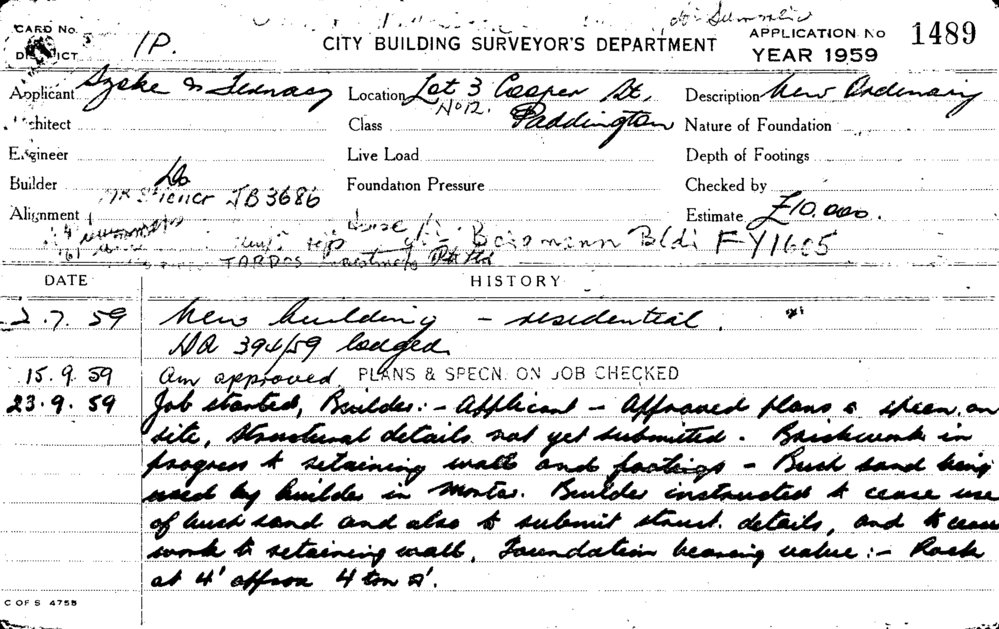 CARD No.
DISTRICT 1P.
CITY BUILDING SURVEYOR'S DEPARTMENT
APPLICATION No 1489
YEAR 1959
Applicant
Location Lot 3 Cooper St,
No 12. Paddington
Description New Ordinary
Architect
Class
Nature of Foundation
Engineer
Live Load
Depth of Footings
Builder Do
JB3686
Foundation Pressure
Checked by
Alignment
Estimate £10,000.
Bldi FY1605
Pty Ltd
DATE
HISTORY
2.7.59 New building - residential.
DA 394/59 lodged.
15.9.59 Am approved PLANS & SPECN. ON JOB CHECKED
23.9.59 Job started, Builder:- Applicant - Approved plans & specn. on
site, structural details not yet submitted. Brickwork in
progress to retaining walls and footings - Bush sand being
used by builder in mortar. Builder instructed to cease use
of bush sand and also to submit struct. details, and to cease
work to retaining wall. Foundation bearing value:- Rock
at 4' approx 4 ton □'.
C OF S 475B